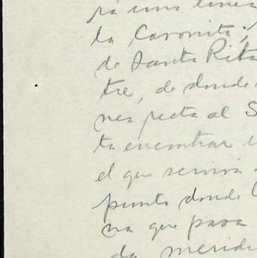 rá una línea
la Caronita;
de Santa Rita
tre, de donde
nea recta al S
ta encontrar l
el que servirá
punto donde
na que pasa
da meridi